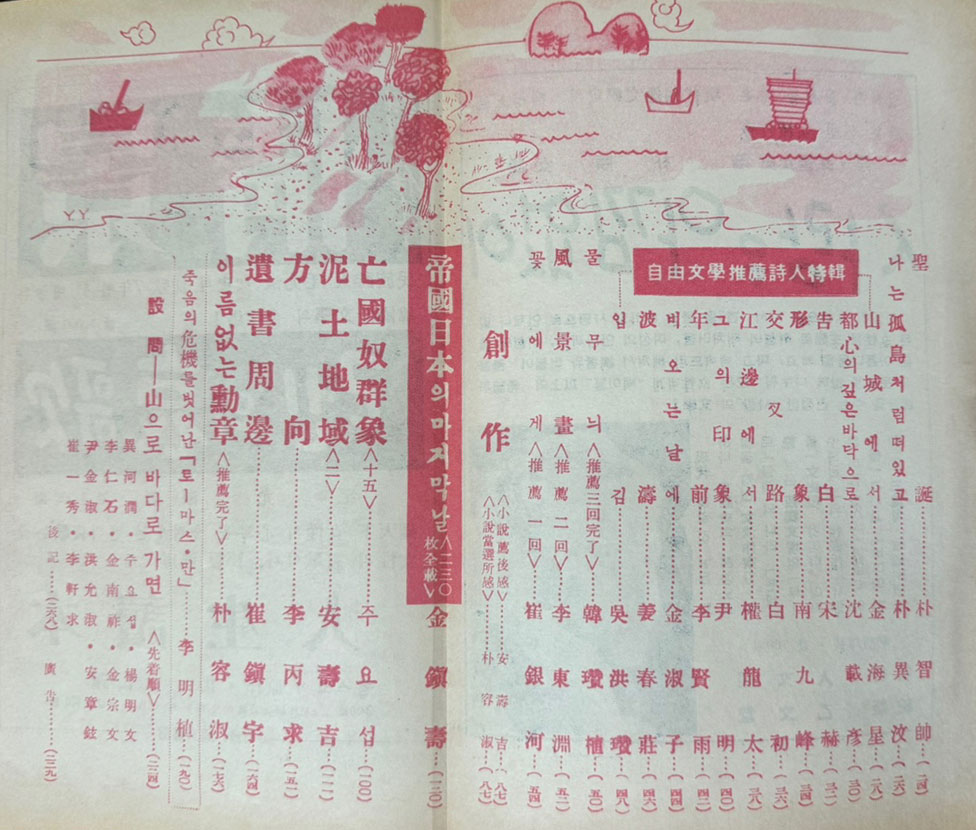 聖誕……朴智帥…(二四)
나는孤島처럼떠있고……朴異汶…(二六)
自由文學推薦詩人特輯
山城에서……金海星…(二八)
都心의깊은바닥으로……沈載彦…(三〇)
告白……宋赫…(三二)
形象……南九峰…(三四)
交叉路……白初…(三六)
江邊에서……權龍太…(三八)
그의印象……尹明…(四〇)
年前……李賢雨…(四二)
비오는날에……金淑子…(四四)
波濤……姜春莊…(四六)
입김……吳洪瓚…(四八)
물무늬<推薦三回完了>……韓瓚植…(五〇)
風景畫<推薦二回>……李東淵…(五二)
꽃에게<推薦一回>……崔銀河…(五四)
創作
<小說薦後感>……安壽吉…(八七)
<小說當選所感>……朴容淑…(八七)
帝國日本의마지막날<二三〇枚全載>金鎭壽…(一三〇)
亡國奴群象<十五>……주요섭…(一〇〇)
泥土地域<二>……安壽吉…(一一二)
方向……李丙求…(一五一)
遺書周邊……崔鎭宇…(一六四)
이름없는勳章<推薦完了>……朴容淑…(一七六)
죽음의危機를벗어난「토ー마스・만」……李明植…(一九〇)
設問——山으로 바다로 가면 <先着順>……(二三四)
異河潤・주요섭・楊明文
李仁石・金南祚・金宗文
尹金淑・洪允淑・安章鉉
崔一秀・李軒求
後記……(二六八) 廣告……(二三九)